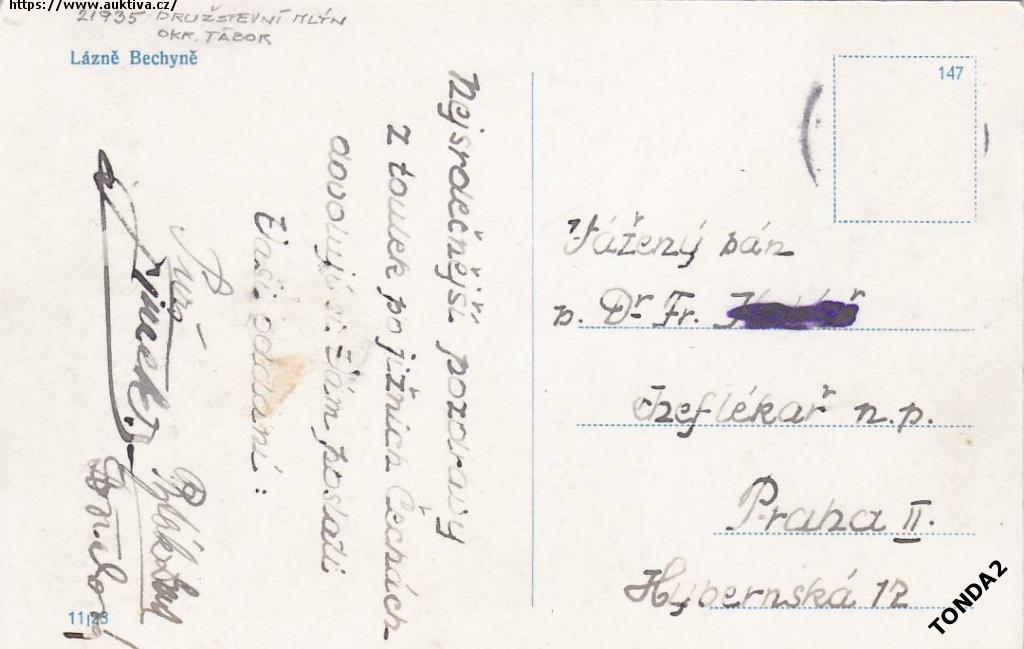 https://www.auktiva.cz/
21935 DRUŽSTEVNÍ MLÝN
OKR. TÁBOR
Lázně Bechyně
147
Nejsrdečnější pozdravy
z toulek po jižních Čechách
dovolují si Vám poslati
Vaši oddaní:
Vážený pán
p. Dr. Fr.
šéflékař n.p.
Praha II.
Hybernská 12
11/23
TONDA2